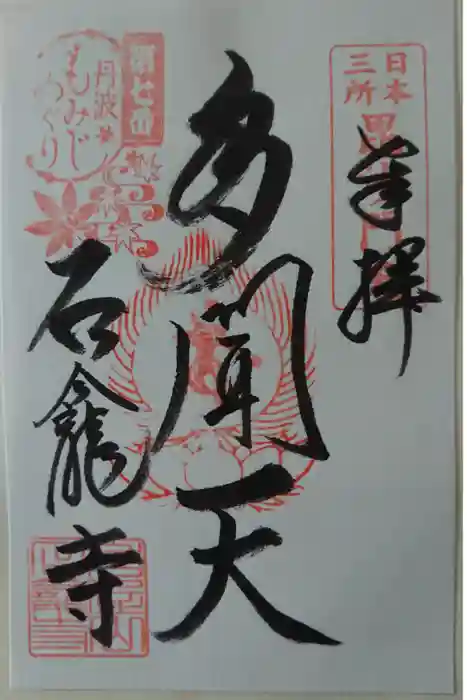 奉拝
日本
三所
毘
多聞天
第七番
丹波
もみじ
めぐり
石龕寺